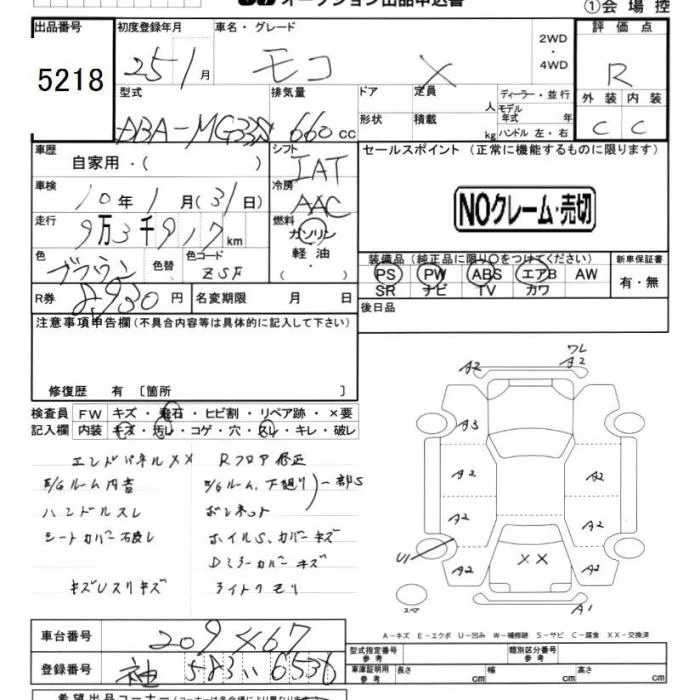 オークション出品申込書
①会場控
出品番号 初度登録年月 車名・グレード 評価点
5218 25/1月 モコ X 2WD・4WD R
型式 排気量 ドア 定員 人 ディーラー・並行 外装 内装
DBA-MG33S 660cc 形状 積載 kg モデル年式 年 ハンドル 左・右 C C
車歴 シフト セールスポイント (正常に機能するものに限ります)
自家用・( ) IAT
車検 冷房
10年1月(31日) AAC
NOクレーム・売切
走行 燃料
9万3千917km ガソリン
軽油
色 色替 色コード 装備品 (純正品に限り○をつけてください) 新車保証書
ブラウン ZSF ・( ) PS PW ABS エアB AW 有・無
R券 8,930円 名変期限 月 日 SR ナビ TV カワ
後日品
注意事項申告欄(不具合内容等は具体的に記入して下さい)
修復歴 有 〔箇所 〕
検査員 FW キズ・飛石・ヒビ割・リペア跡・×要
記入欄 内装 キズ・汚レ・コゲ・穴・スレ・キレ・破レ
エンドパネルXX Rフロア修正
E/Gルーム内音 E/Gルーム、下廻り)一部S
ハンドルスレ ボンネット
シートカバー石良レ ホイルS、カバーキズ
Dミラーカバーキズ
キズUスリキズ ライトクモリ
ワレ
A2 A2
A3
A2 A2
A2 A2
U1 A2 XX A2
スペア A1
A-キズ E-エクボ U-凹み W-補修跡 S-サビ C-腐食 XX-交換済
車台番号 209467 型式指定番号 参考 類別区分番号 参考
登録番号 袖 583 い 6536 車庫証明用 参考 長さ cm 幅 cm 高さ cm
希望出品コーナー